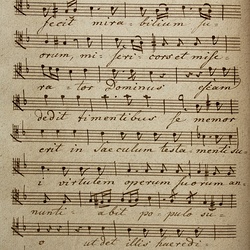 fecit mira bilium su
orum, mi seri cors et mise
ra tor Dominus escam
dedit timentibus se memor
erit in saeculum testa menti su
i virtutem operum suorum an
nunti abit po pulo su
o ut det illis haeredi